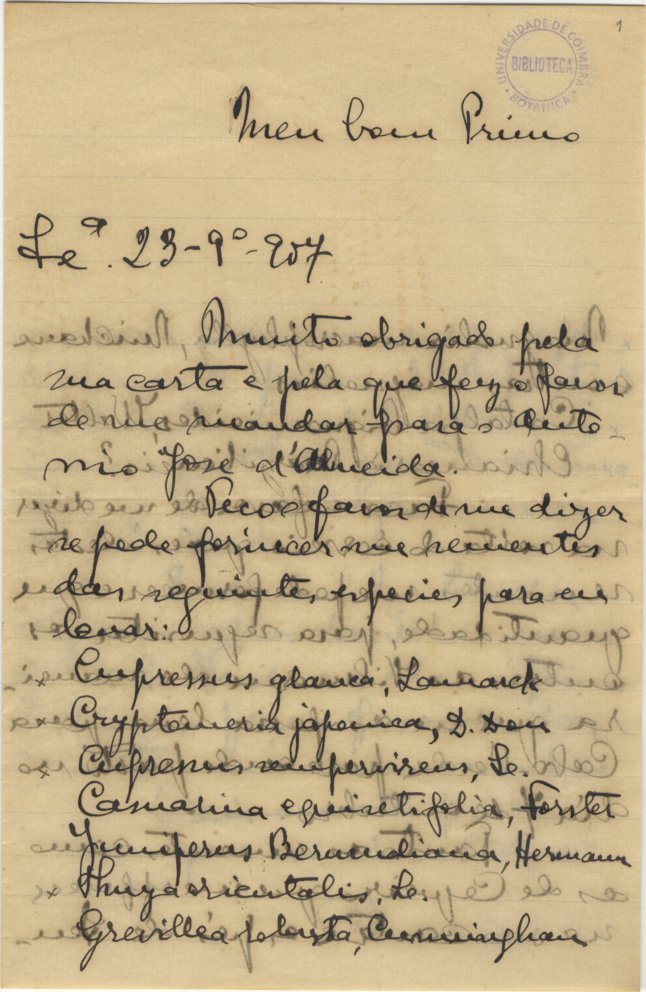 1
UNIVERSIDADE DE COIMBRA
BIBLIOTECA
BOTANICA
Meu bom Primo
23-9º-907
Muito obrigado pela
sua carta e pela que fez o favor
de me mandar para o Anto
nio José d'Almeida.
Peço o favor de me dizer
se pode fornecer-me sementes
das seguintes especies para eu
levar:
x Cupressus glauca, Lamarck
Cryptomeria japonica, D. Don
x Cupressus sempervirens, Le.
Casuarina equisetifolia, Forster
Juniperus Bermudiana, Hermann
x Thuya orientalis, Le.
Grevillea robusta, Cunningham